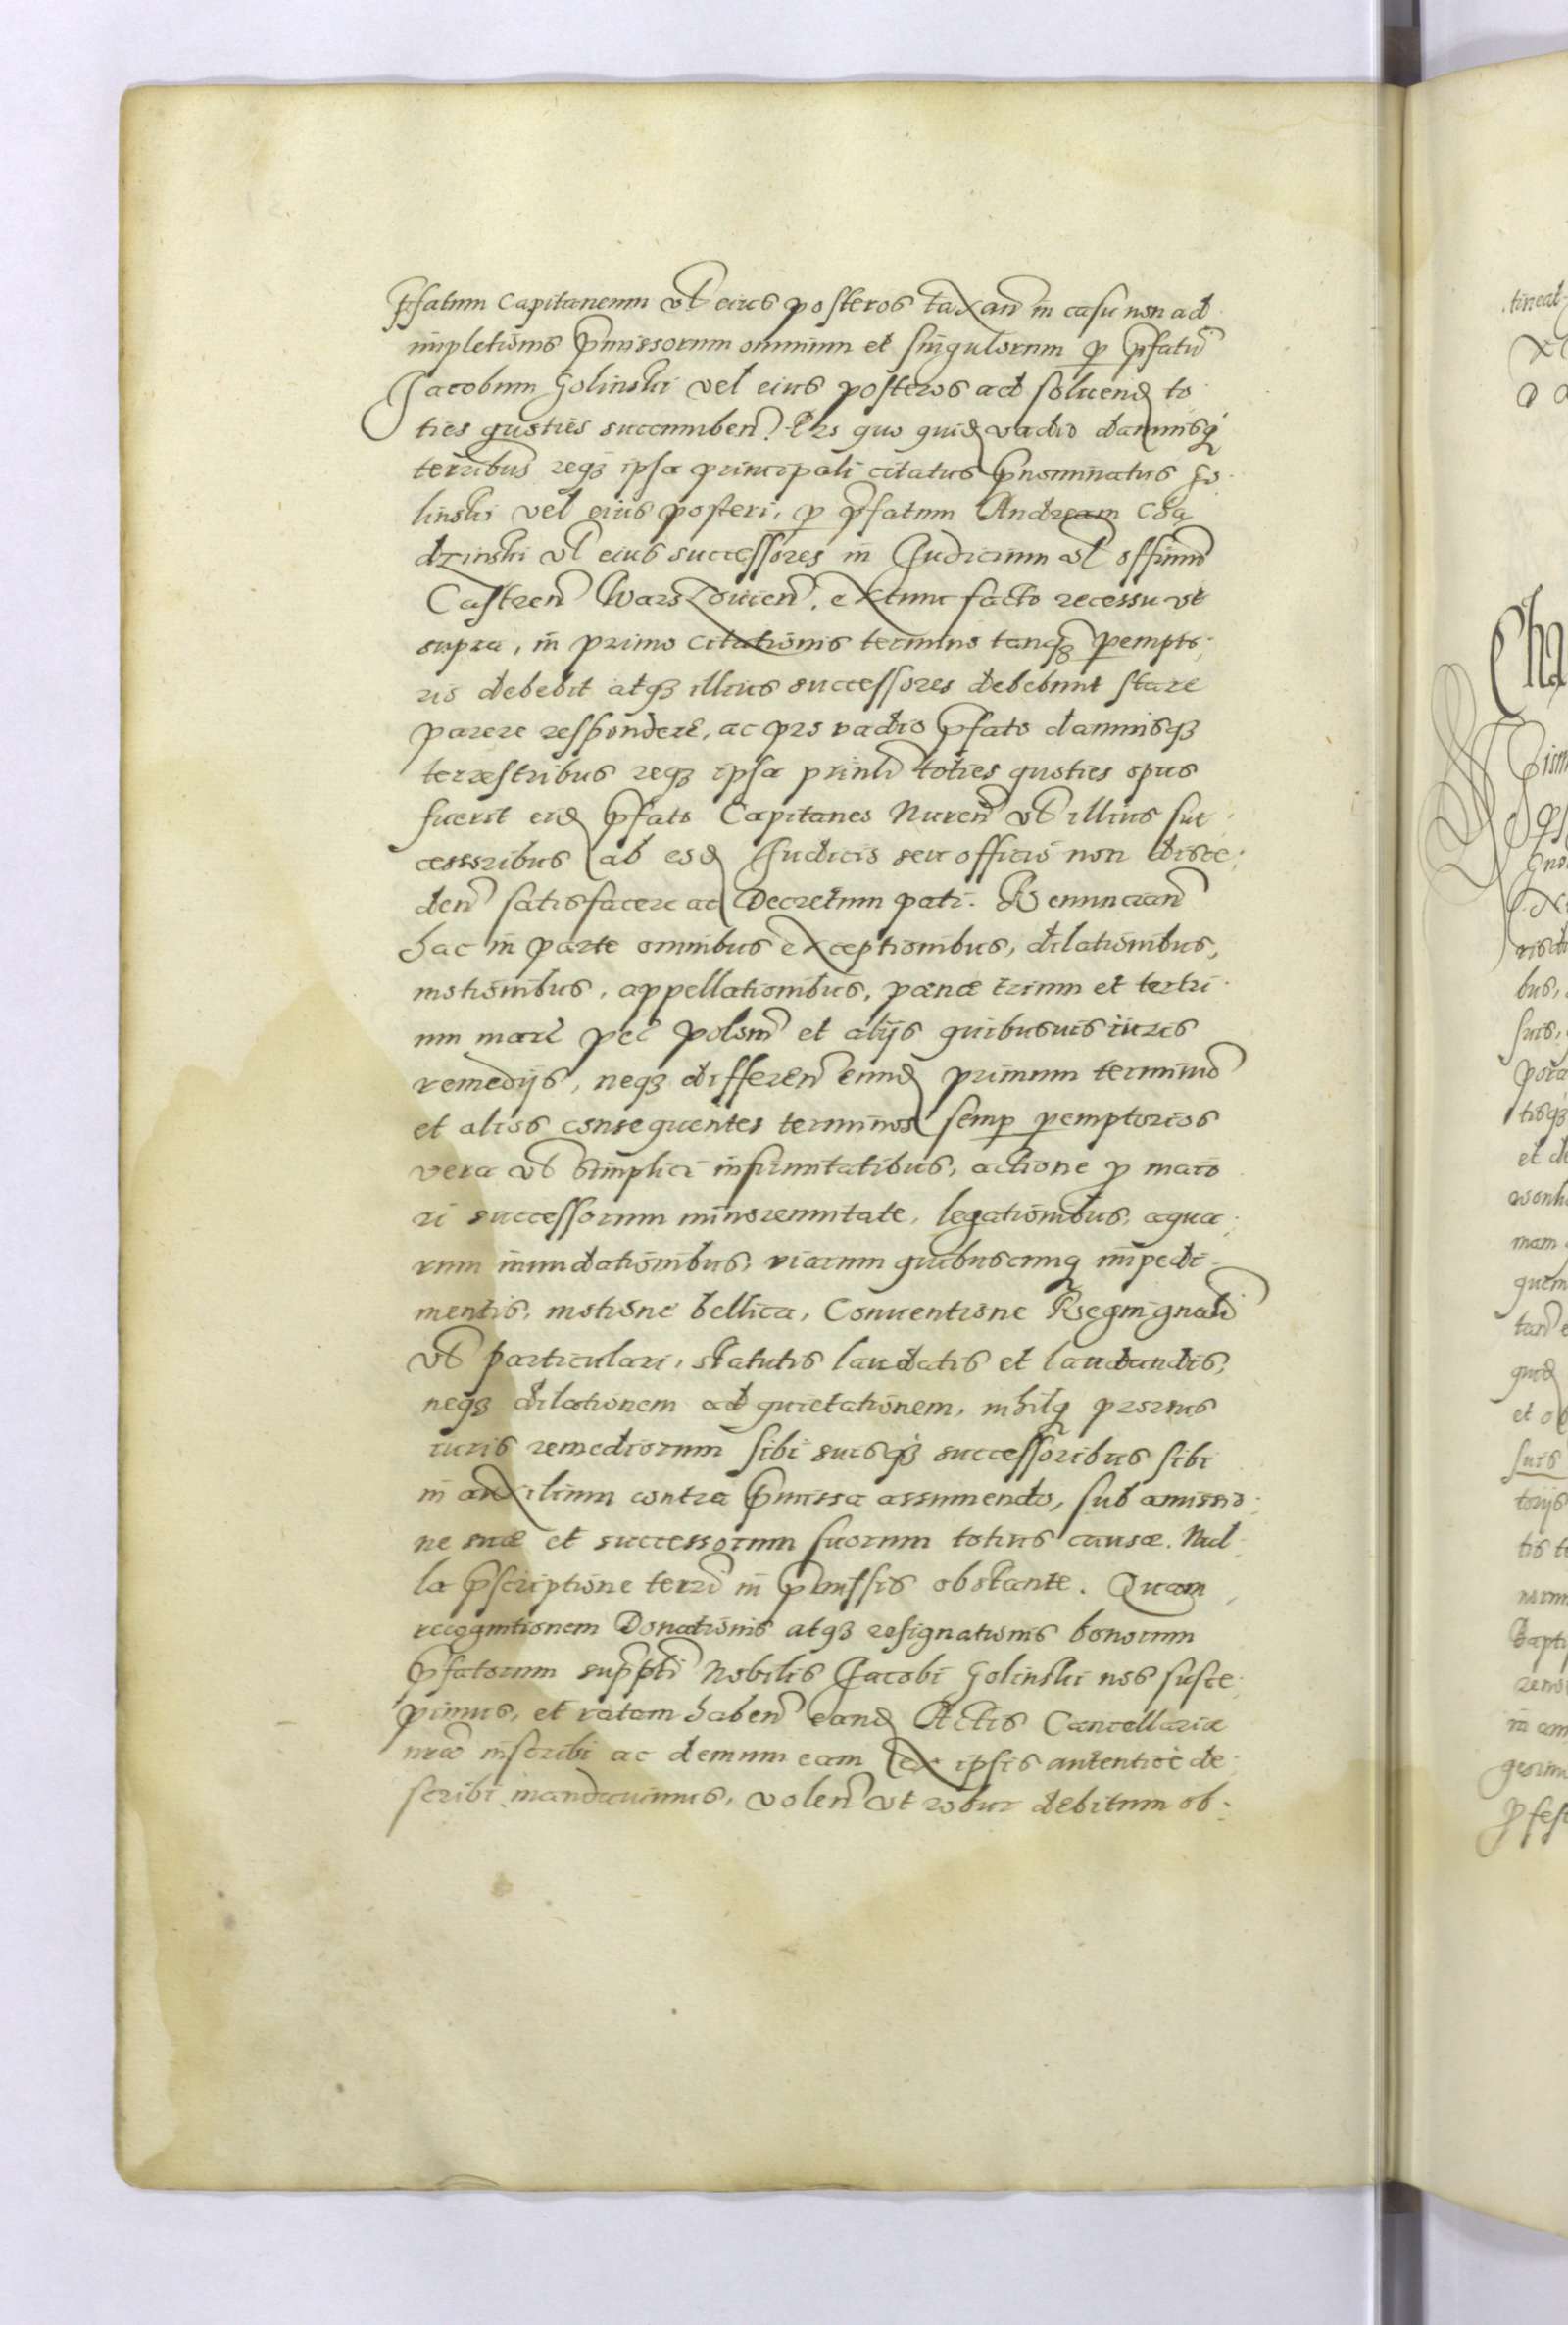 p̄fatum Capitaneum vl̄ eius posteros taxan̄ in casu non ad
impletionis p̄missorum omnium et singulorum ꝑ p̄fatū
Jacobum Golinski vel eius posteros ad soluend̄ to
ties quoties succumben̄. Pro quo quid̄ vadio damnisq̨
terribus reqꝫ ipsa principali citatus p̄nominatus Go
linski vel eius posteri, ꝑ p̄fatum Andream Cha
dzinski vl̄ eius successores in Judicium vl̄ offiūm
Castren̄ Warszouien̄. extunc facto recessu vt
supra, in primo citationis termino tanqꝫ ꝑempto
rio debebit atqꝫ illius successores debebunt stare
parere respondere, ac pro vadio p̄fato damnisqꝫ
terrestribus reqꝫ ipsa prinlī toties quoties opus
fuerit eid̄ p̄fato Capitaneo Nuren̄ vl̄ illius suc
cessoribus ab eod̄ Judicio seu officio non disce
den̄ satisfacere ac Decretum pati. Renuncian̄
hac in parte omnibus exceptionibus, dilationibus,
motionibus, appellationibus, pœnæ trium et terri
um marc̄ pec̄ polon̄ et alijs quibusuis iuris
remedijs, neqꝫ differen̄ eund̄ primum terminū
et alios consequentes terminos semꝑ ꝑemptorios
vera vl̄ simplici infirmitatibus, actione ꝑ maio
ri successorum minorennitate, legationibus, aqua
rum inundationibus, viarum quibuscunq̨ impedi
mentis, motione bellica, Conuentione Regni gnali
vl̄ particulari, statutis laudatis et laudandis,
neqꝫ dilationem ad quietationem, nihilq̨ prorsus
iuris remediorum sibi suisqꝫ successoribus sibi
in auxilium contra p̄missa assumendo, sub amissio
ne suæ et successorum suorum totius causæ. Nul
la p̄scriptione terrī in p̄missis obstante. Quam
recognitionem Donationis atqꝫ resignationis bonorum
p̄fatorum supp̄ti Nobilis Jacobi Golinski nos susce
pimus, et ratam haben̄ eand̄ Actis Cancellariæ
nr̄æ inscribi ac demum eam ex ipsis autentice de
scribi mandauimus, volen̄ vt robur debitum ob